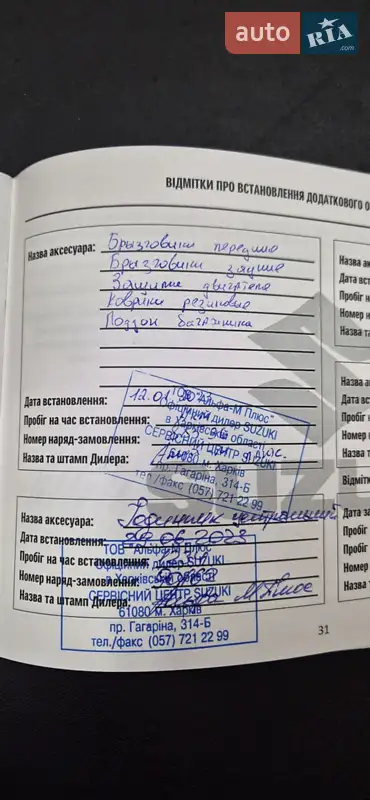 auto RIA.com
ВІДМІТКИ ПРО ВСТАНОВЛЕННЯ ДОДАТКОВОГО О
Назва аксесуара: Брызговики передние
Брызговики задние
Защита двигателя
Коврики резиновые
Поддон багажника
Дата встановлення: 12.01.
Пробіг на час встановлення:
Номер наряд-замовлення:
Назва та штамп Дилера:
"Альфа-М Плюс"
Офіційний дилер SUZUKI
в Харківській області
СЕРВІСНИЙ ЦЕНТР SUZUKI
61080 м. Харків
пр. Гагаріна, 314-Б
тел./факс (057) 721 22 99
Назва аксесуара:
Дата встановлення: 29.06.2023
Пробіг на час встановлення:
Номер наряд-замовлення:
Назва та штамп Дилера: Альфа М Плюс
ТОВ "Альфа-М Плюс"
Офіційний дилер SUZUKI
в Харківській області
СЕРВІСНИЙ ЦЕНТР SUZUKI
61080 м. Харків
пр. Гагаріна, 314-Б
тел./факс (057) 721 22 99
Назва ак
Дата вст
Пробіг н
Номер н
Назва та
Назва а
Дата вс
Пробіг
Номер
Назва т
Відмітк
Дата за
Пробіг
Пробіг
Номер
Назва
SUZU
31